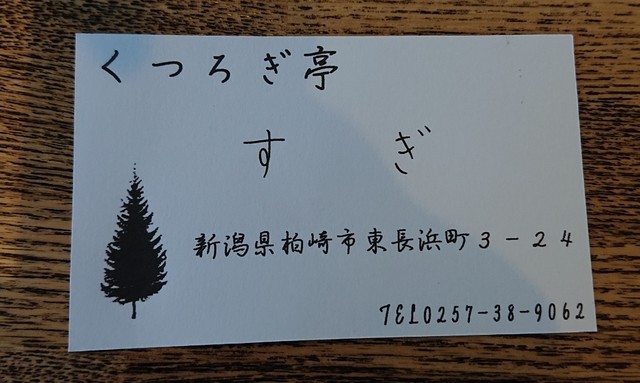 くつろぎ亭
すぎ
新潟県柏崎市東長浜町3-24
TEL0257-38-9062